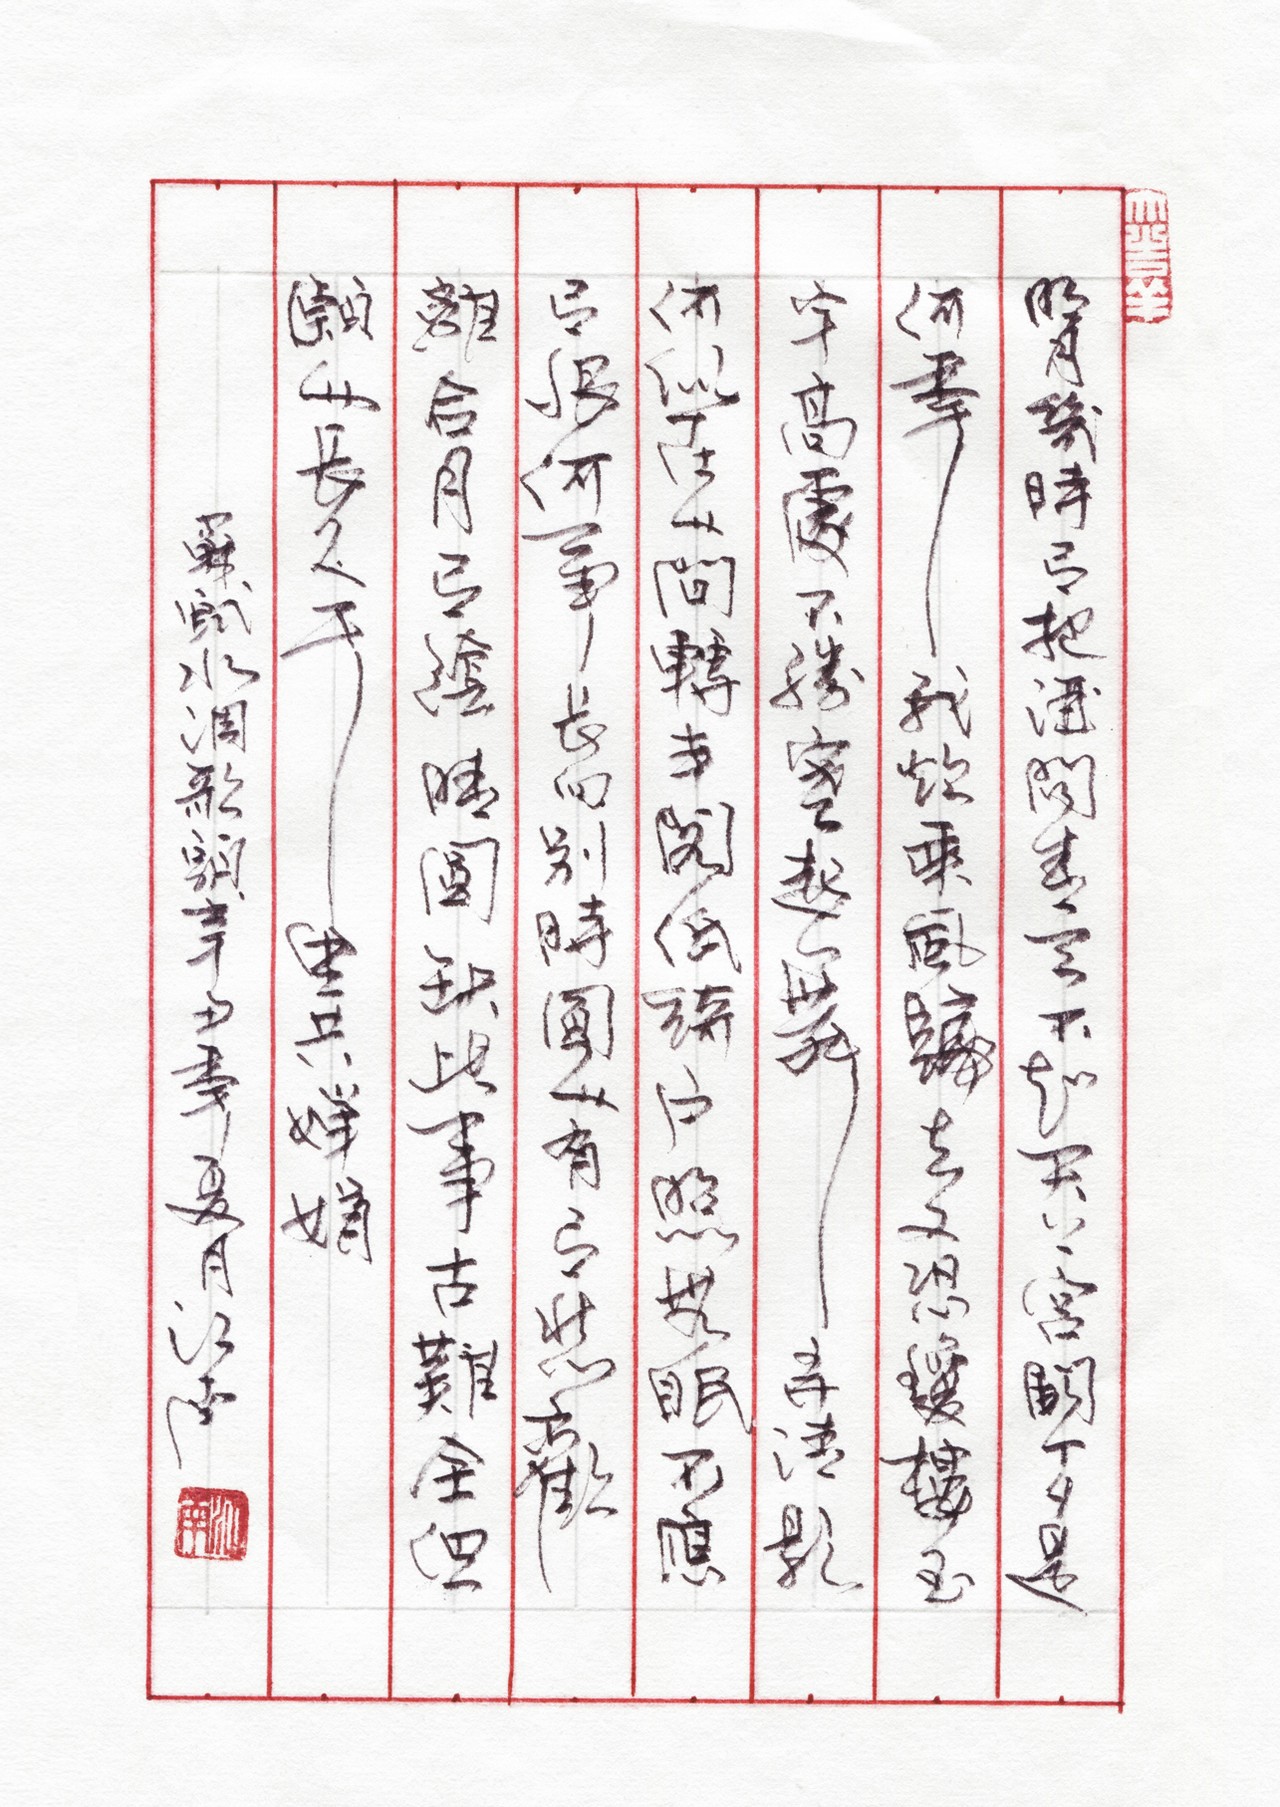 明月幾時有把酒問青天不知天上宮闕今夕是
何年我欲乘風歸去又恐瓊樓玉
宇高處不勝寒起舞弄清影
何似在人間轉朱閣低綺戶照無眠不應
有恨何事長向別時圓人有有悲歡
離合月有陰晴圓缺此事古難全但
願人長久千里共嬋娟
蘇軾水調歌頭辛丑年夏月江南
江南